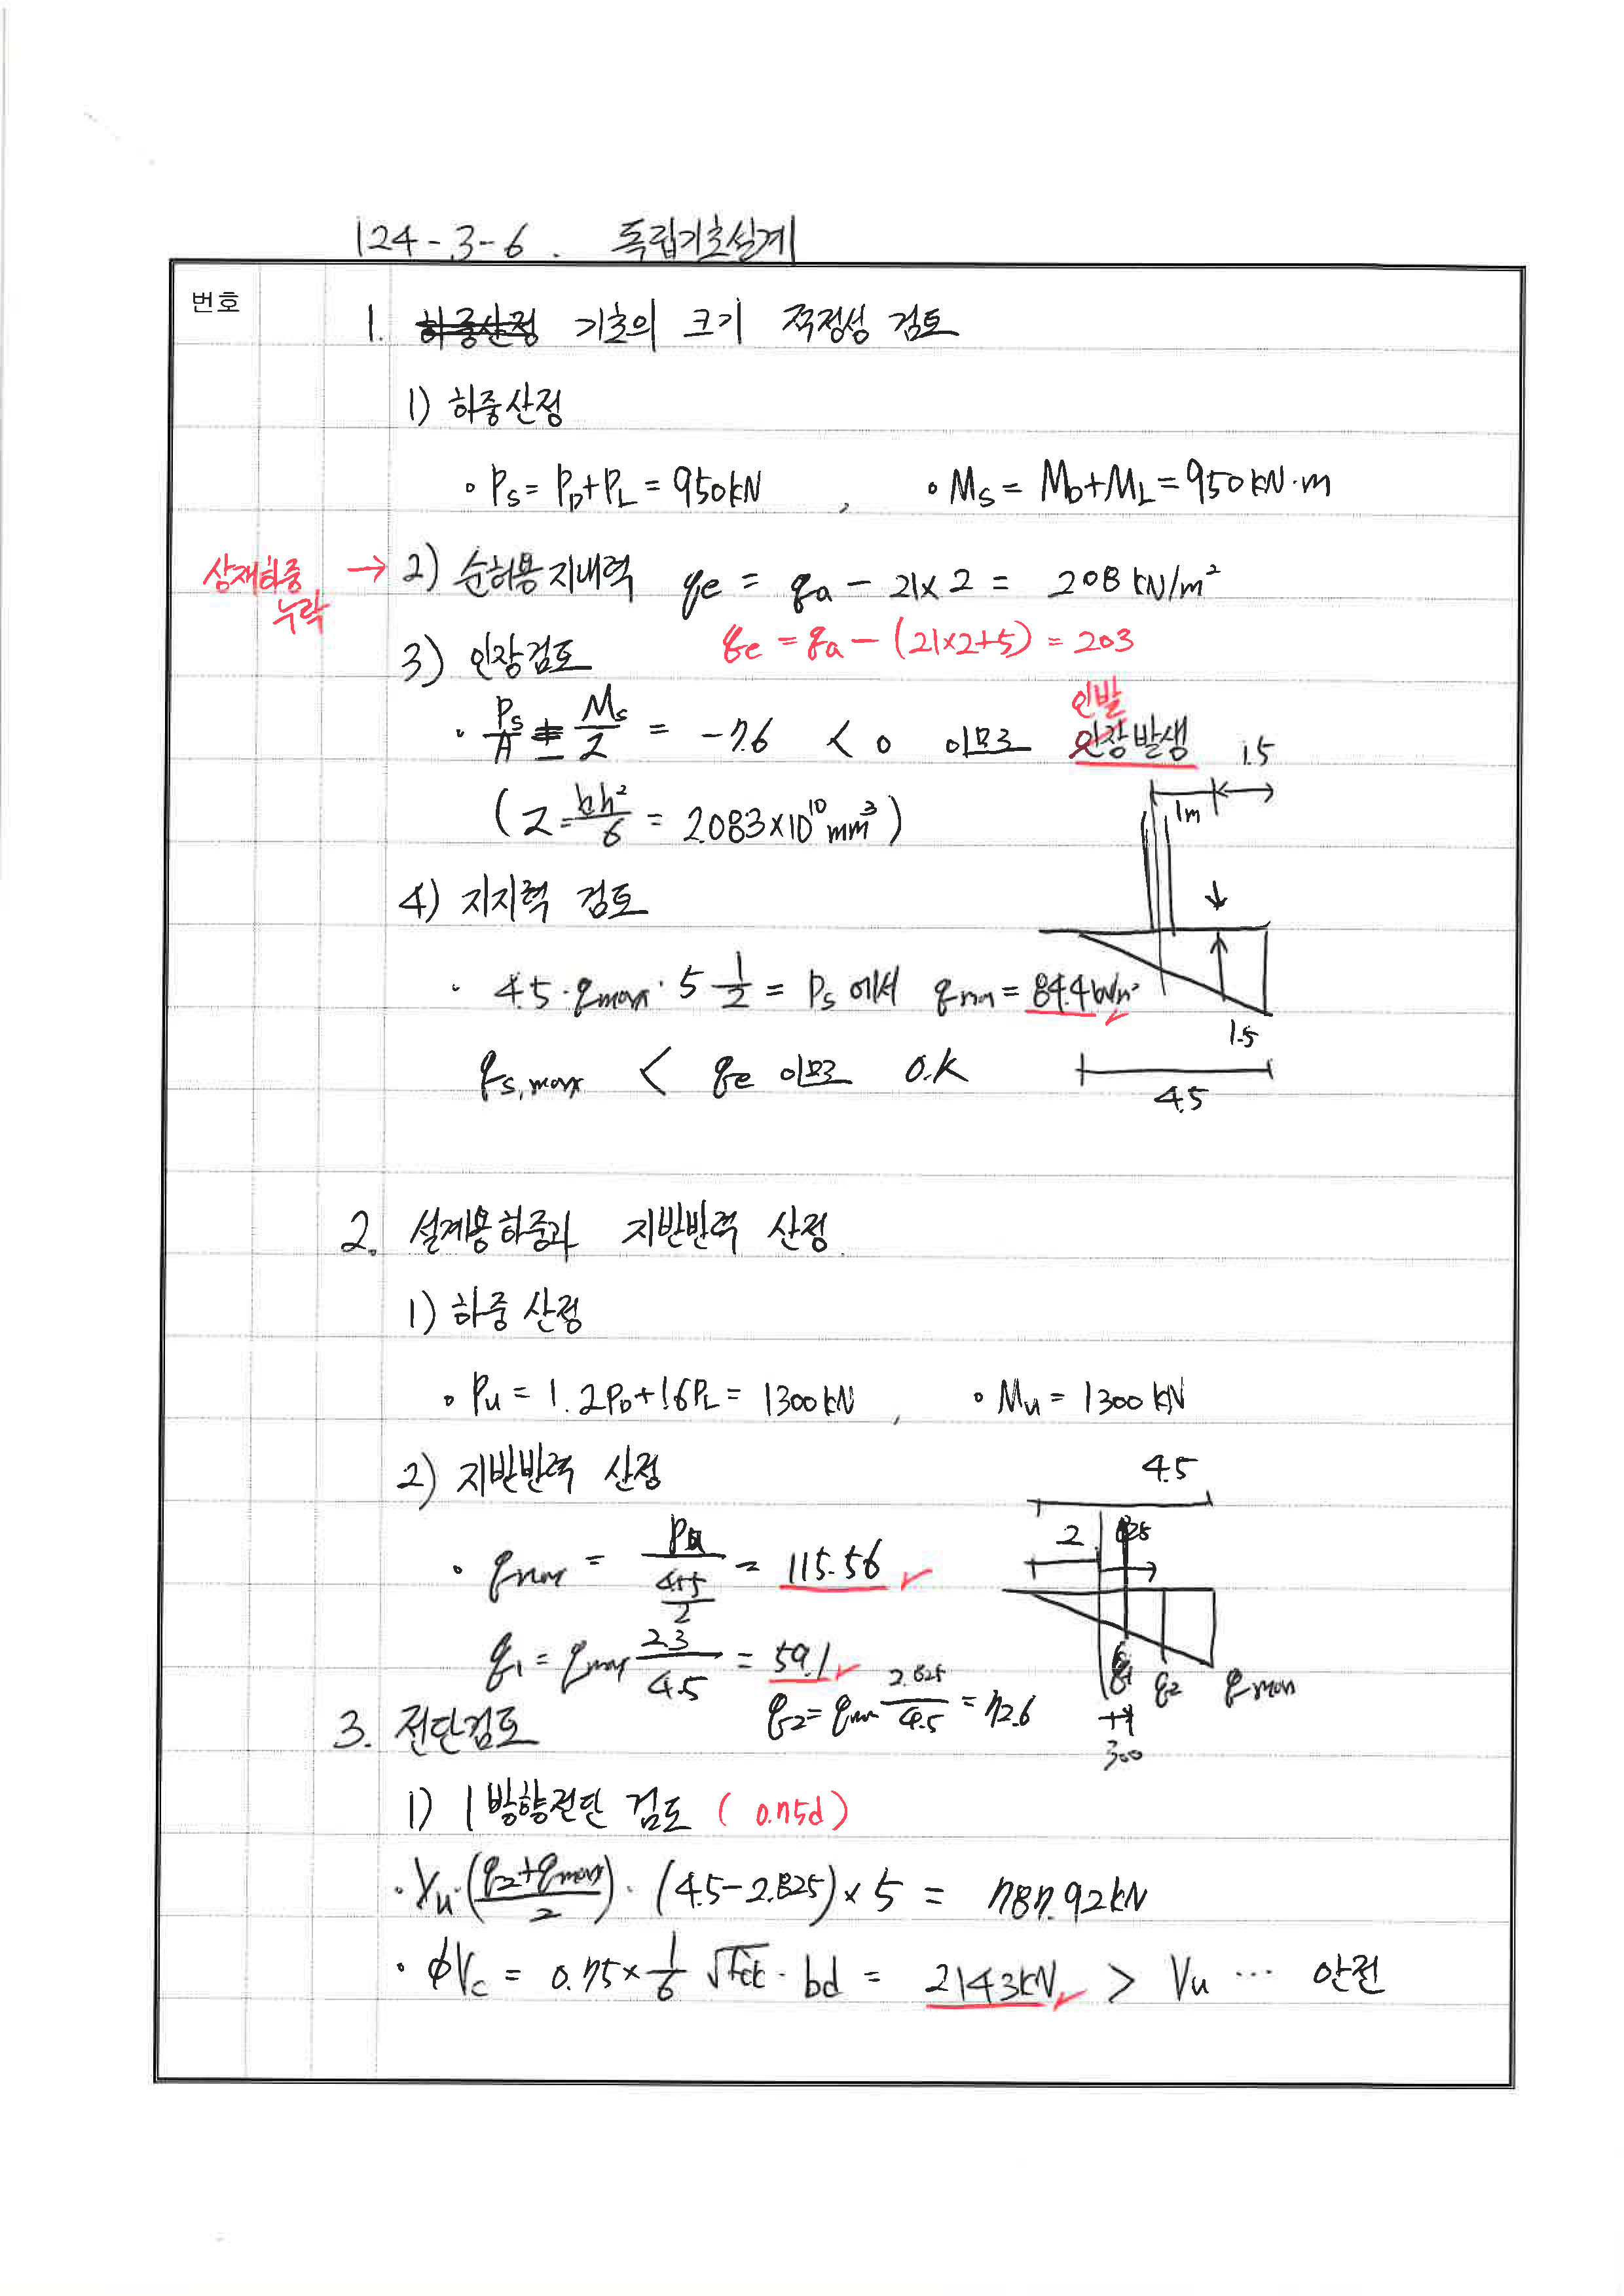 124-3-6. 독립기초설계
번호
1. 하중산정 기초의 크기 적정성 검토
1) 하중산정
∘ Ps = PD+PL = 950kN , ∘ Ms = MD+ML = 950kN·m
상재하중 누락 → 2) 순허용지내력 qe = qa - 21×2 = 208 kN/m²
qe = qa - (21×2+5) = 203
3) 인장검토
· Ps/A ± Ms/Z = -7.6 < 0 이므로 인장발생
인발
(Z = bh²/6 = 2.083×10¹⁰mm³)
1.5
1m
4) 지지력 검토
· 4.5·qmax·5 1/2 = Ps 에서 qmax = 84.4kN/m²
1.5
4.5
qs,max < qe 이므로 O.K
2. 설계용하중과 지반반력 산정.
1) 하중 산정
∘ Pu = 1.2PD+1.6PL = 1300kN , ∘ Mu = 1300kN
2) 지반반력 산정
4.5
2
· qmax = Pu / (4.5·5/2) = 115.56
q1 = qmax 2.3/4.5 = 59.1
q2 = qmax 2.825/4.5 = 72.6
q1 q2 qmax
300
3. 전단검토
1) 1방향전단 검토 (0.75d)
· Vu·((q2+qmax)/2)·(4.5-2.825)×5 = 787.92kN
· φVc = 0.75×1/6 √fck·bd = 2143kN > Vu … 안전